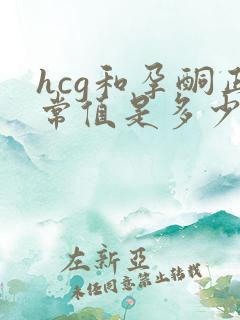 hcg和孕酮正
常值是多少
左新亞
未经同意禁止转载